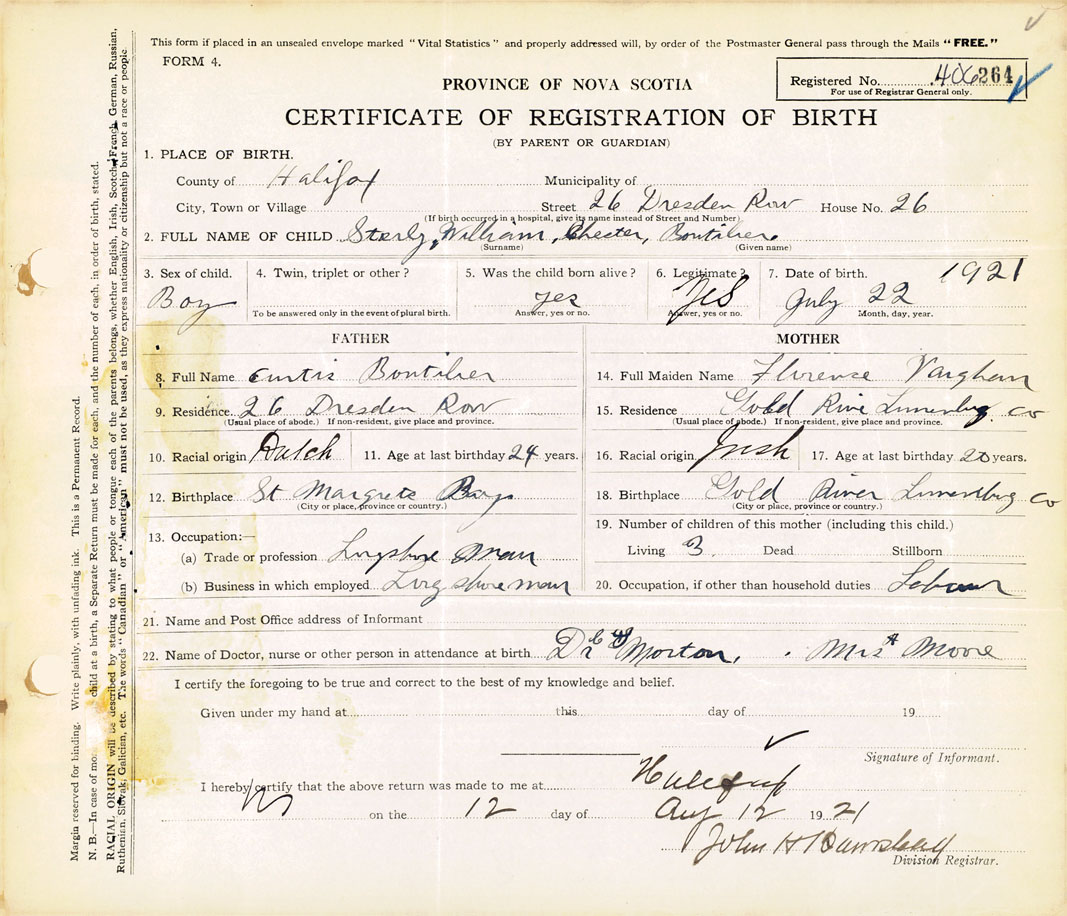 This form if placed in an unsealed envelope marked "Vital Statistics" and properly addressed will, by order of the Postmaster General pass through the Mails "FREE."
FORM 4.
PROVINCE OF NOVA SCOTIA
Registered No. 406264
For use of Registrar General only.
CERTIFICATE OF REGISTRATION OF BIRTH
(BY PARENT OR GUARDIAN)
1. PLACE OF BIRTH.
County of Halifax Municipality of
City, Town or Village Street 26 Dresden Row House No. 26
(If birth occurred in a hospital, give its name instead of Street and Number)
2. FULL NAME OF CHILD Sterly, William, Chester, Boutilier
(Surname) (Given name)
3. Sex of child. 4. Twin, triplet or other? 5. Was the child born alive? 6. Legitimate? 7. Date of birth. 1921
Boy yes Yes July 22
To be answered only in the event of plural birth. Answer, yes or no. Answer, yes or no. Month, day, year.
FATHER MOTHER
8. Full Name Curtis Boutilier 14. Full Maiden Name Florence Vaughan
9. Residence 26 Dresden Row 15. Residence Gold River Lunenburg Co
(Usual place of abode.) If non-resident, give place and province. (Usual place of abode.) If non-resident, give place and province.
10. Racial origin Dutch 11. Age at last birthday 24 years. 16. Racial origin Irish 17. Age at last birthday 20 years.
12. Birthplace St Margrets Bay 18. Birthplace Gold River Lunenburg Co
(City or place, province or country.) (City or place, province or country.)
13. Occupation:— 19. Number of children of this mother (including this child.)
(a) Trade or profession Longshore Man Living 3 Dead Stillborn
(b) Business in which employed Longshoreman 20. Occupation, if other than household duties
21. Name and Post Office address of Informant
22. Name of Doctor, nurse or other person in attendance at birth Dr Morton, Mrs Moore
I certify the foregoing to be true and correct to the best of my knowledge and belief.
Given under my hand at this day of 19
Signature of Informant.
I hereby certify that the above return was made to me at Halifax
on the 12 day of Aug 12 1921
John H
Division Registrar.
Margin reserved for binding. Write plainly, with unfading ink. This is a Permanent Record.
N. B.—In case of more child at a birth, a Separate Return must be made for each, and the number of each, in order of birth, stated.
RACIAL ORIGIN will be described by stating to what people or tongue each of the parents belongs, whether English, Irish, Scotch, French, German, Russian,
Ruthenian, Slovak, Galician, etc. The words "Canadian" or "American" must not be used, as they express nationality or citizenship but not a race or people.